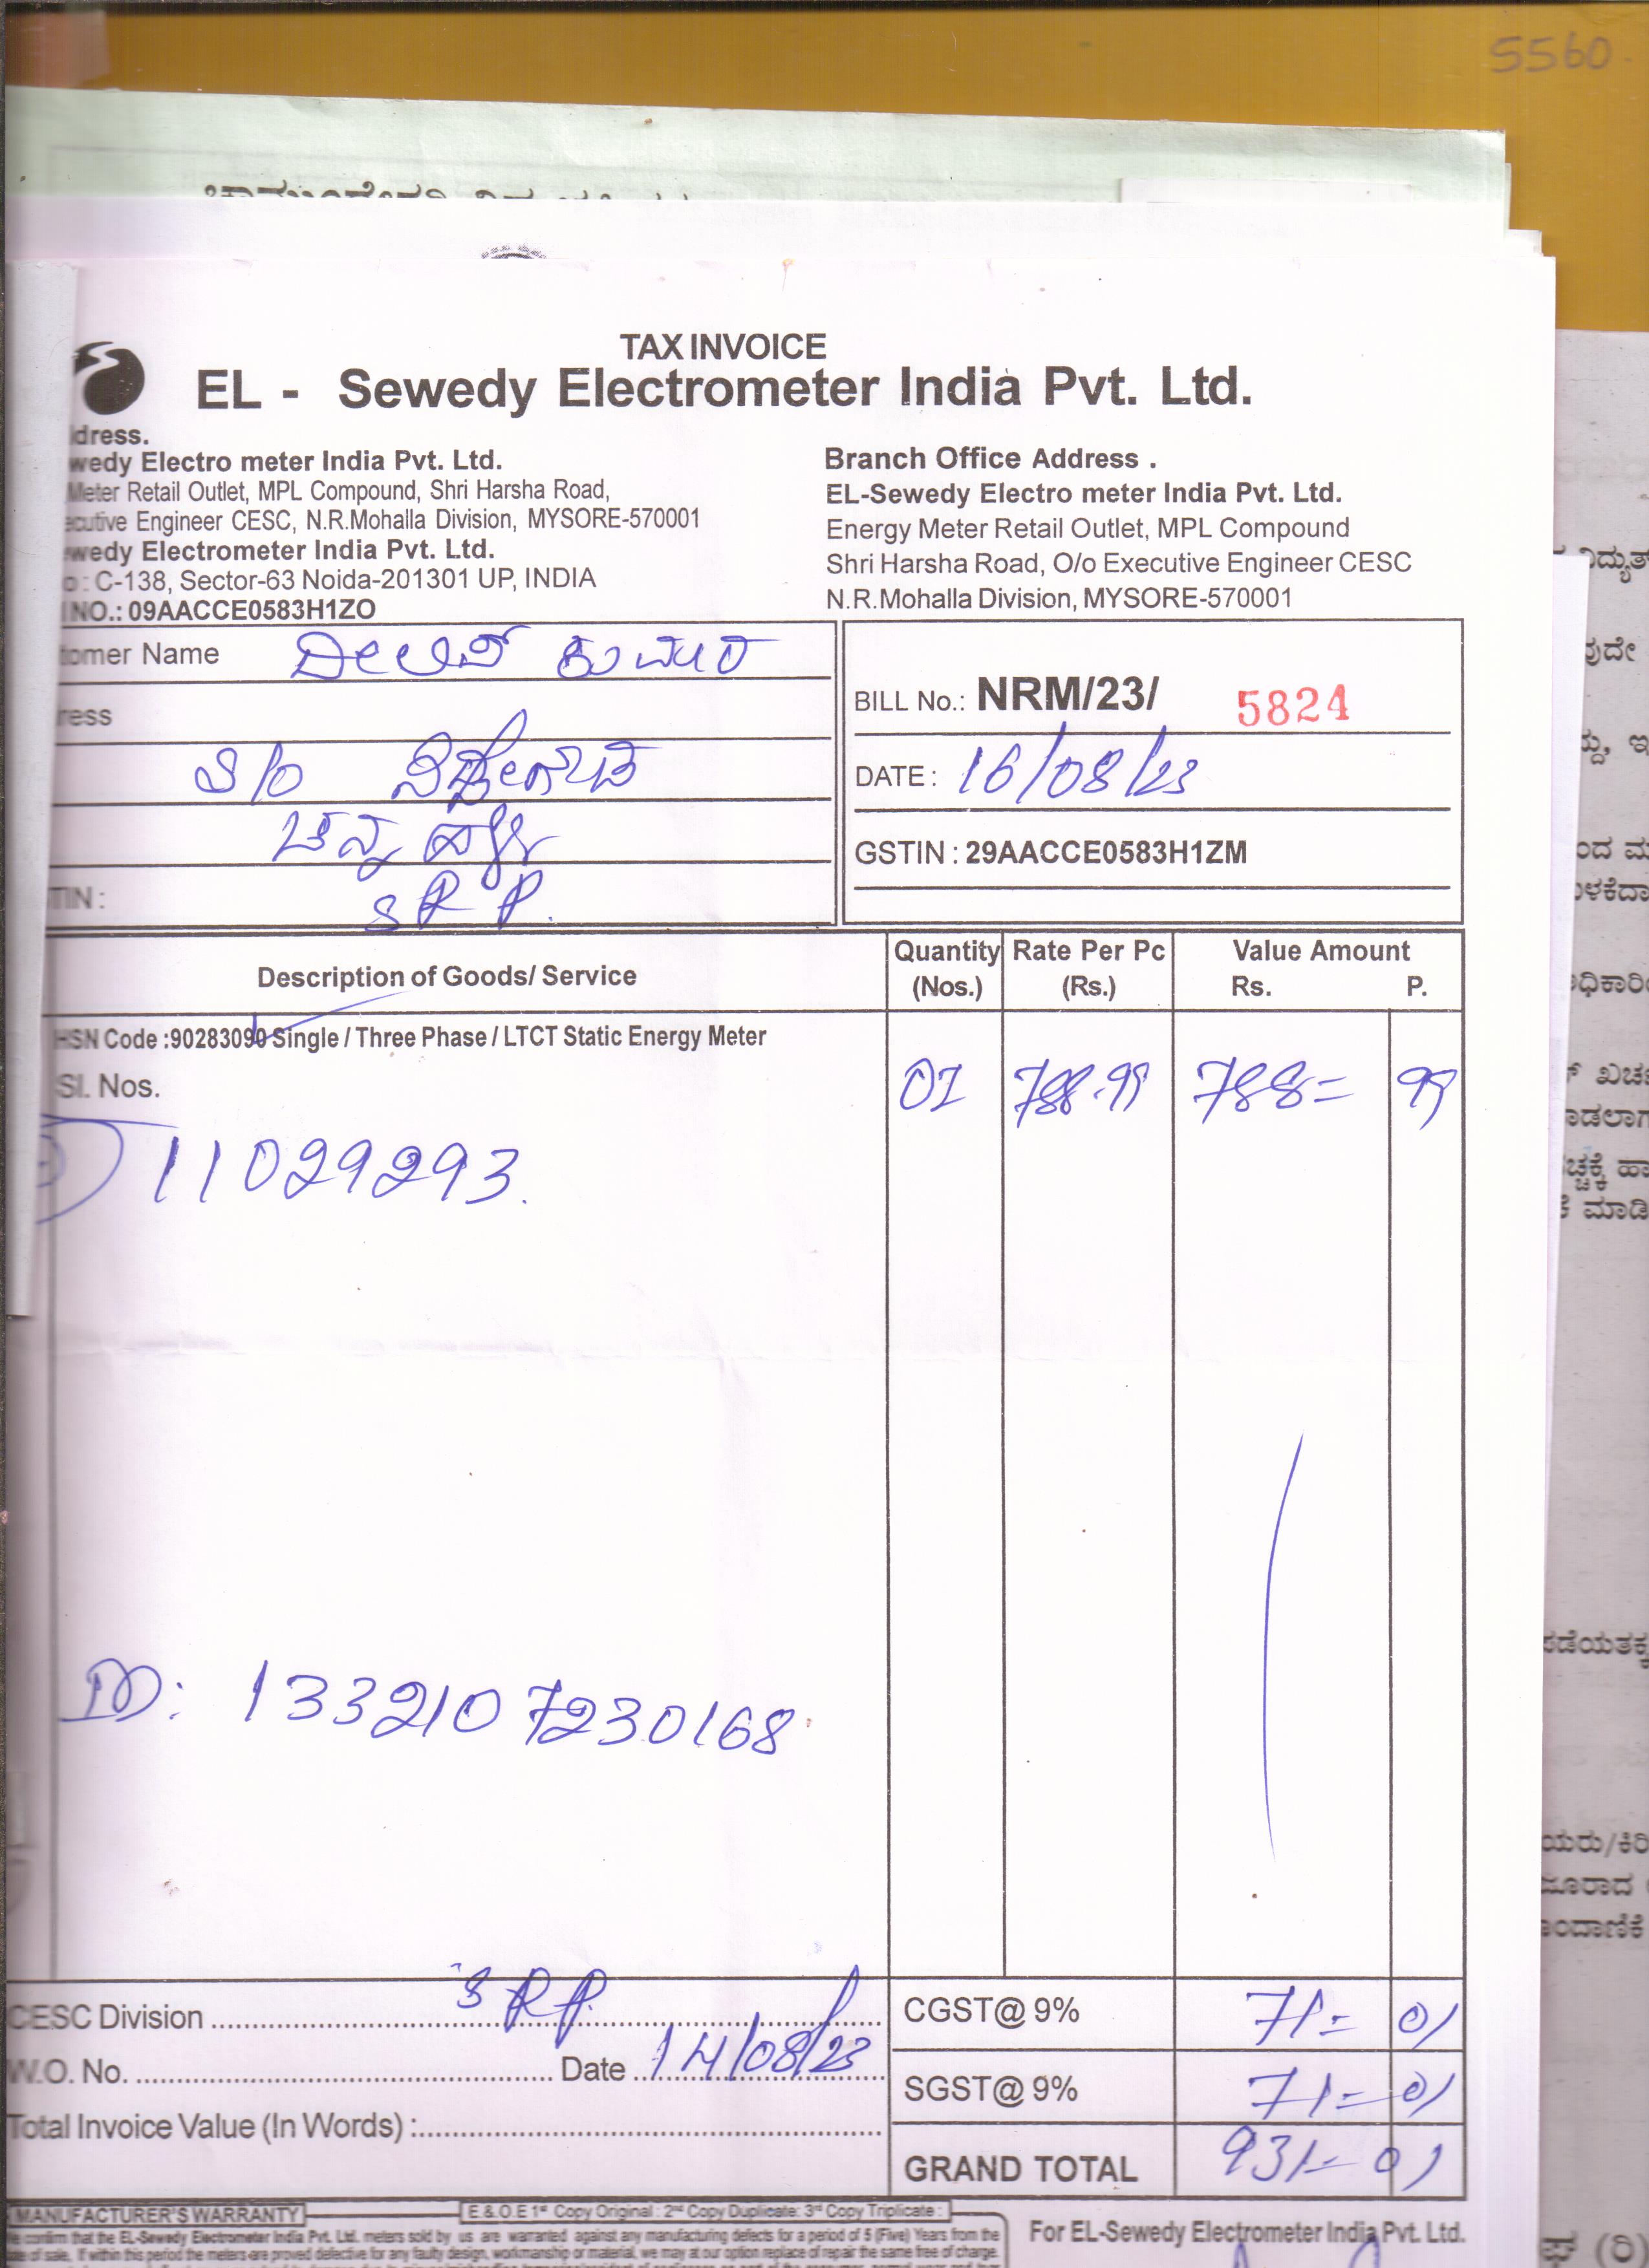 5560
TAX INVOICE
EL - Sewedy Electrometer India Pvt. Ltd.
dress.
wedy Electro meter India Pvt. Ltd.
Meter Retail Outlet, MPL Compound, Shri Harsha Road,
ecutive Engineer CESC, N.R.Mohalla Division, MYSORE-570001
wedy Electrometer India Pvt. Ltd.
o : C-138, Sector-63 Noida-201301 UP, INDIA
NO.: 09AACCE0583H1ZO
Branch Office Address .
EL-Sewedy Electro meter India Pvt. Ltd.
Energy Meter Retail Outlet, MPL Compound
Shri Harsha Road, O/o Executive Engineer CESC
N.R.Mohalla Division, MYSORE-570001
tomer Name ದೀಲಿಪ್ ಕುಮಾರ
ress
S/o
ಚನ್ನಹಳ್ಳಿ
TIN : SRP.
BILL No.: NRM/23/ 5824
DATE : 16/08/23
GSTIN : 29AACCE0583H1ZM
Description of Goods/ Service Quantity (Nos.) Rate Per Pc (Rs.) Value Amount Rs. P.
HSN Code :90283090 Single / Three Phase / LTCT Static Energy Meter
Sl. Nos. 01 788.99 788= 99
11029293.
ID: 1332107230168
CESC Division SRP.
W.O. No. Date 14/08/23
Total Invoice Value (In Words) :
CGST@ 9% 71= 01
SGST@ 9% 71= 01
GRAND TOTAL 931= 01
MANUFACTURER'S WARRANTY
E.& O.E 1st Copy Original : 2nd Copy Duplicate: 3rd Copy Triplicate :
confirm that the EL-Sewedy Electrometer India Pvt. Ltd. meters sold by us are warranted against any manufacturing defects for a period of 5 (Five) Years from the
of sale, If within this period the meters are proved defective for any faulty design, workmanship or material, we may at our option replace of repair the same free of charge.
For EL-Sewedy Electrometer India Pvt. Ltd.